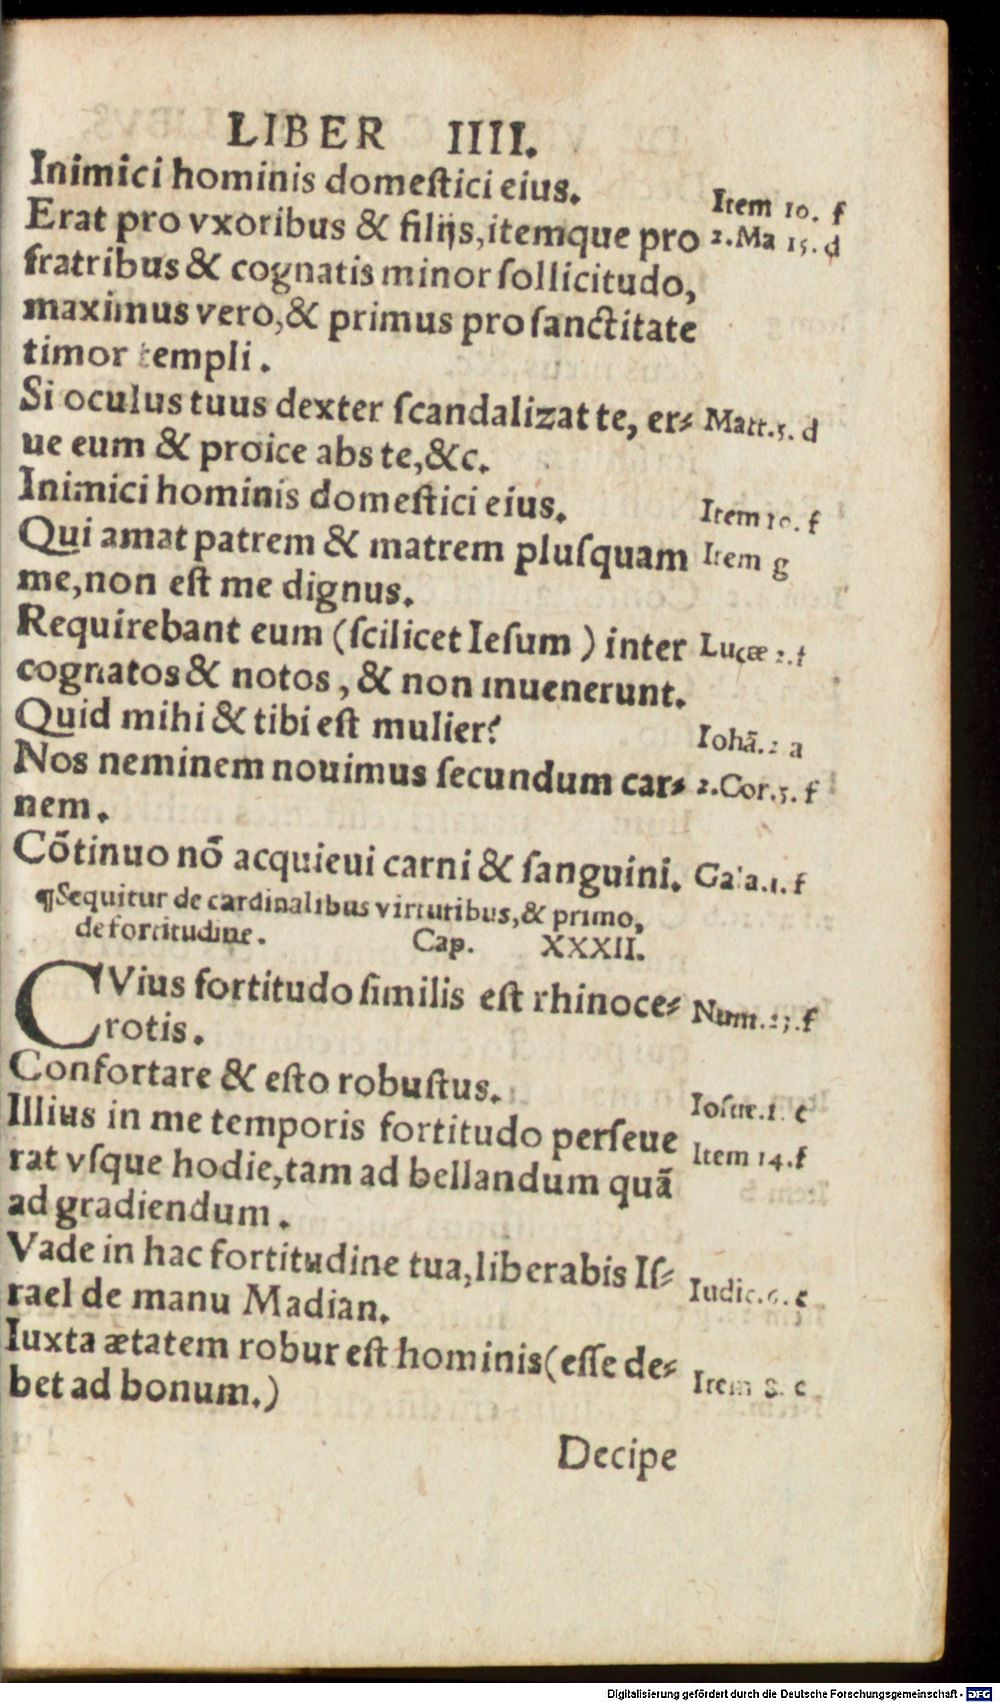 LIBER IIII.
Inimici hominis domeſtici eius. Item 10. f
Erat pro vxoribus & filijs, itemque pro 2.Ma 15. d
fratribus & cognatis minor ſollicitudo,
maximus vero, & primus pro ſanctitate
timor templi.
Si oculus tuus dexter ſcandalizat te, er⸗ Matt.5. d
ue eum & proice abs te, &c.
Inimici hominis domeſtici eius. Item 10. f
Qui amat patrem & matrem pluſquam Item g
me, non eſt me dignus.
Requirebant eum (ſcilicet Ieſum) inter Lucæ 2.f
cognatos & notos, & non inuenerunt.
Quid mihi & tibi eſt mulier? Iohã.2 a
Nos neminem nouimus ſecundum car⸗ 2.Cor.5. f
nem.
Cõtinuo nõ acquieui carni & ſanguini. Gala.1. f
¶Sequitur de cardinalibus virtutibus, & primo,
de fortitudine. Cap. XXXII.
CVius fortitudo ſimilis eſt rhinoce⸗ Num.23.f
rotis.
Confortare & eſto robuſtus. Ioſue.1. c
Illius in me temporis fortitudo perſeue Item 14.f
rat vſque hodie, tam ad bellandum quã
ad gradiendum.
Vade in hac fortitudine tua, liberabis Iſ⸗ Iudic.6. c
rael de manu Madian.
Iuxta ætatem robur eſt hominis (eſſe de⸗ Item 8. c
bet ad bonum.)
Decipe
Digitalisierung gefördert durch die Deutsche Forschungsgemeinschaft - DFG